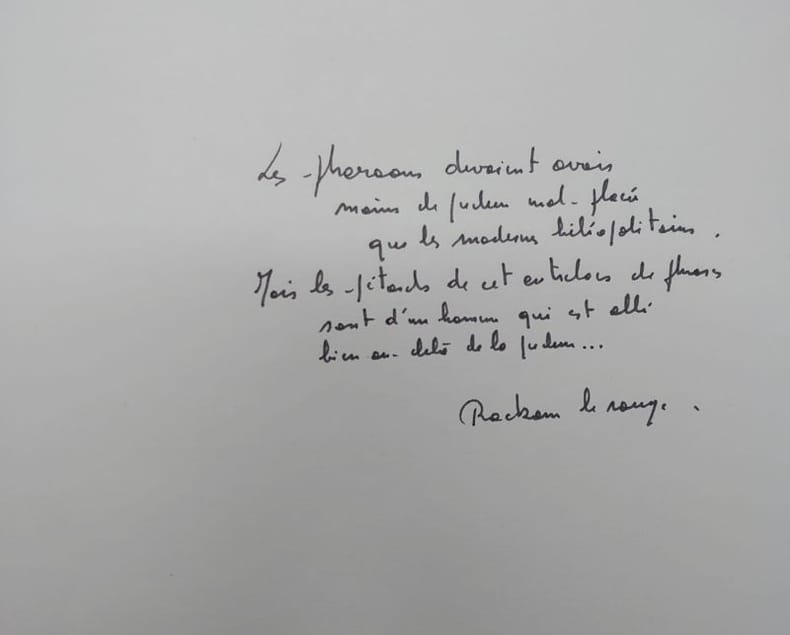 Les pharaons devaient avoir
moins de pudeur mal-placée
que les modernes héliopolitains.
Mais les pétards de cet de fleurs
sont d'un homme qui est allé
bien au-delà de la pudeur...
Rackam le rouge.